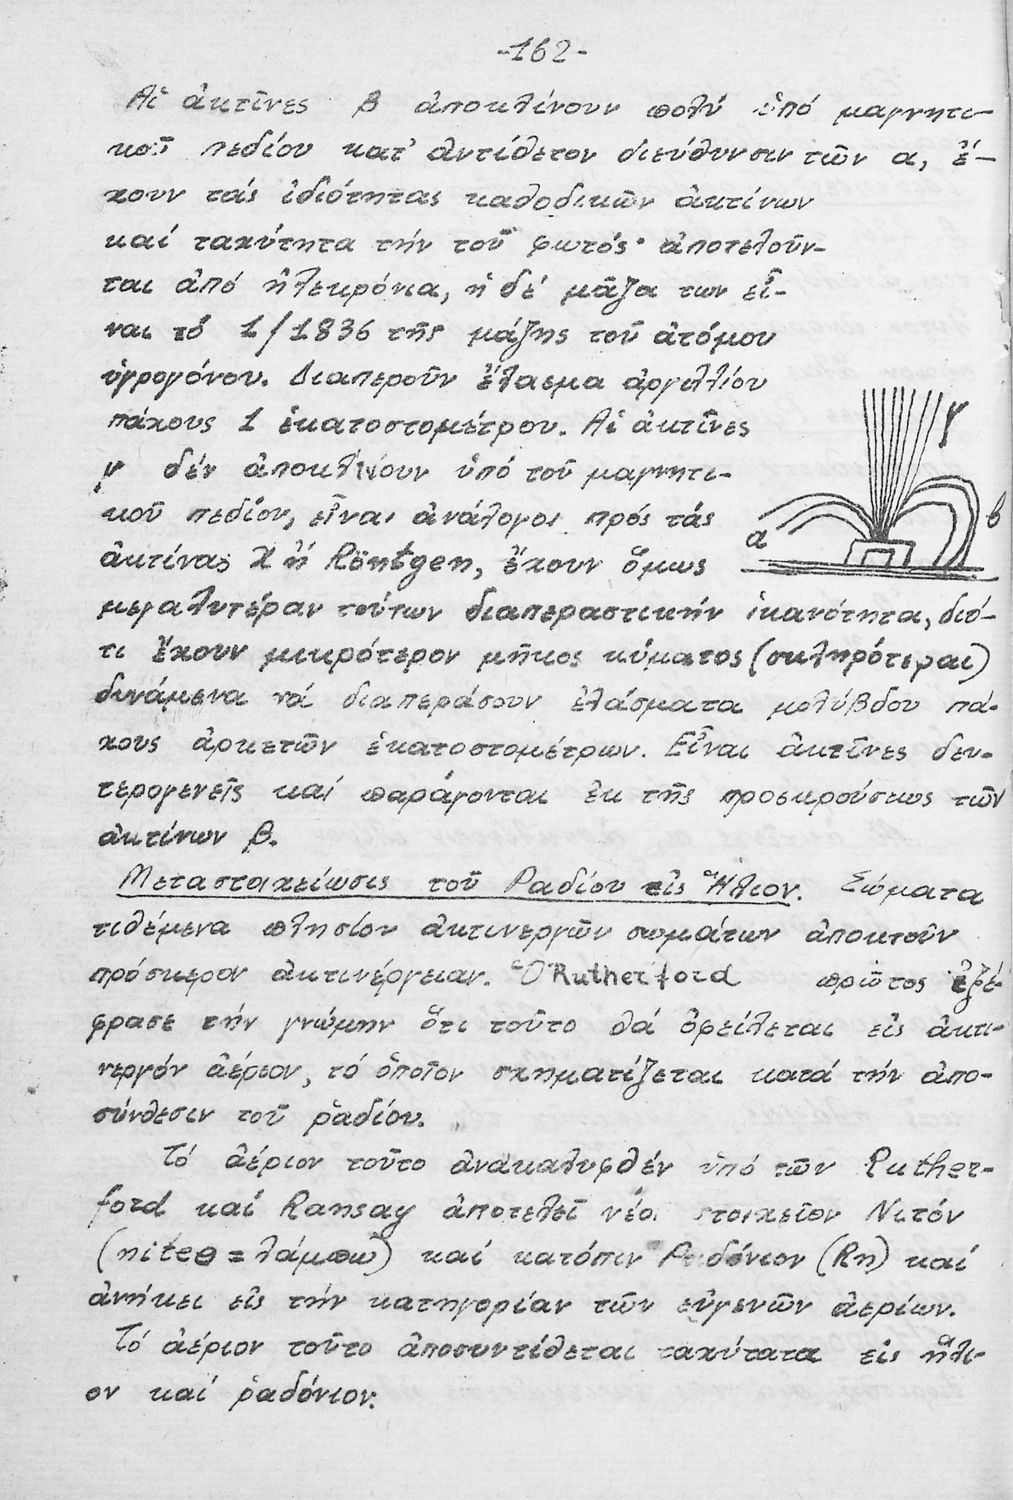 -162-
Αἱ ἀκτῖνες β ἀποκλίνουν πολύ ὑπό μαγνητι-
κοῦ πεδίου κατ' ἀντίθετον διεύθυνσιν τῶν α, ἔ-
χουν τάς ἰδιότητας καθοδικῶν ἀκτίνων
καί ταχύτητα τήν τοῦ φωτός· ἀποτελοῦν-
ται ἀπό ἠλεκρόνια, ἡ δέ μᾶζα των εἶ-
ναι τό 1/1836 τῆς μάζης τοῦ ἀτόμου
ὑγρογόνου. Διαπεροῦν ἔλασμα ἀργιλλίου
πάχους 1 ἑκατοστομέτρου. Αἱ ἀκτῖνες
γ δέν ἀποκλίνουν ὑπό τοῦ μαγνητι-
κοῦ πεδίου, εἶναι ἀνάλογοι πρός τάς
ἀκτίνας Χ ἤ Röntgen, ἔχουν ὅμως
μεγαλυτέραν τούτων διαπεραστικήν ἱκανότητα, διό-
τι ἔχουν μικρότερον μῆκος κύματος (σκληρότεραι)
δυνάμενα νά διαπεράσουν ἐλάσματα μολύβδου πά-
χους ἀρκετῶν ἑκατοστομέτρων. Εἶναι ἀκτῖνες δευ-
τερογενεῖς καί παράγονται ἐκ τῆς προσκρούσεως τῶν
ἀκτίνων β.
Μεταστοιχείωσις τοῦ Ραδίου εἰς Ἥλιον. Σώματα
τιθέμενα πλησίον ἀκτινεργῶν σωμάτων ἀποκτοῦν
πρόσκερον ἀκτινέργειαν. Ὁ Rutherford πρῶτος ἐξέ-
φρασε τήν γνώμην ὅτι τοῦτο θά ὀφείλεται εἰς ἀκτι-
νεργόν ἀέριον, τό ὁποῖον σχηματίζεται κατά τήν ἀπο-
σύνθεσιν τοῦ ραδίου.
Τό ἀέριον τοῦτο ἀνακαλυφθέν ὑπό τῶν Ruther-
ford καί Ransay ἀποτελεῖ νέον στοιχεῖον Νιτόν
(niteo = λάμπω) καί κατόπιν Ραδόνιον (Rn) καί
ἀνήκει εἰς τήν κατηγορίαν τῶν εὐγενῶν ἀερίων.
Τό ἀέριον τοῦτο ἀποσυντίθεται ταχύτατα εἰς ἥλι-
ον καί ραδόνιον.
γ
α
β